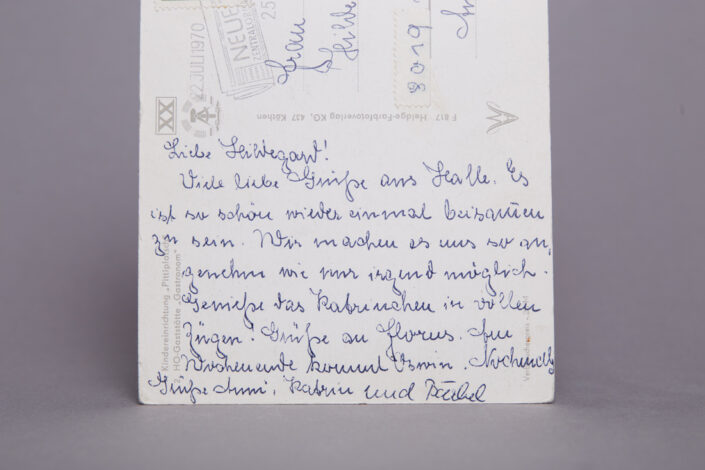 22 JULI 1970
NEUE
ZENTRALO
25
Frau
Hilde
8019
XX
F 817 Heldge-Farbfotoverlag KG, 437 Köthen
Liebe Hildegard!
Viele liebe Grüße aus Halle. Es
ist so schön wieder einmal beisam̄en
zu sein. Wir machen es uns so an,
genehm wie nur irgend möglich.
Genieße das Katrinchen in vollen
Zügen! Grüße an Florus. Am
Wochenende kommt Erwin. Nochmals
Grüße Omi, Katrin und Bärbel
Kindereinrichtung „Pittiplatsch"
2. HO-Gaststätte „Gastronom"